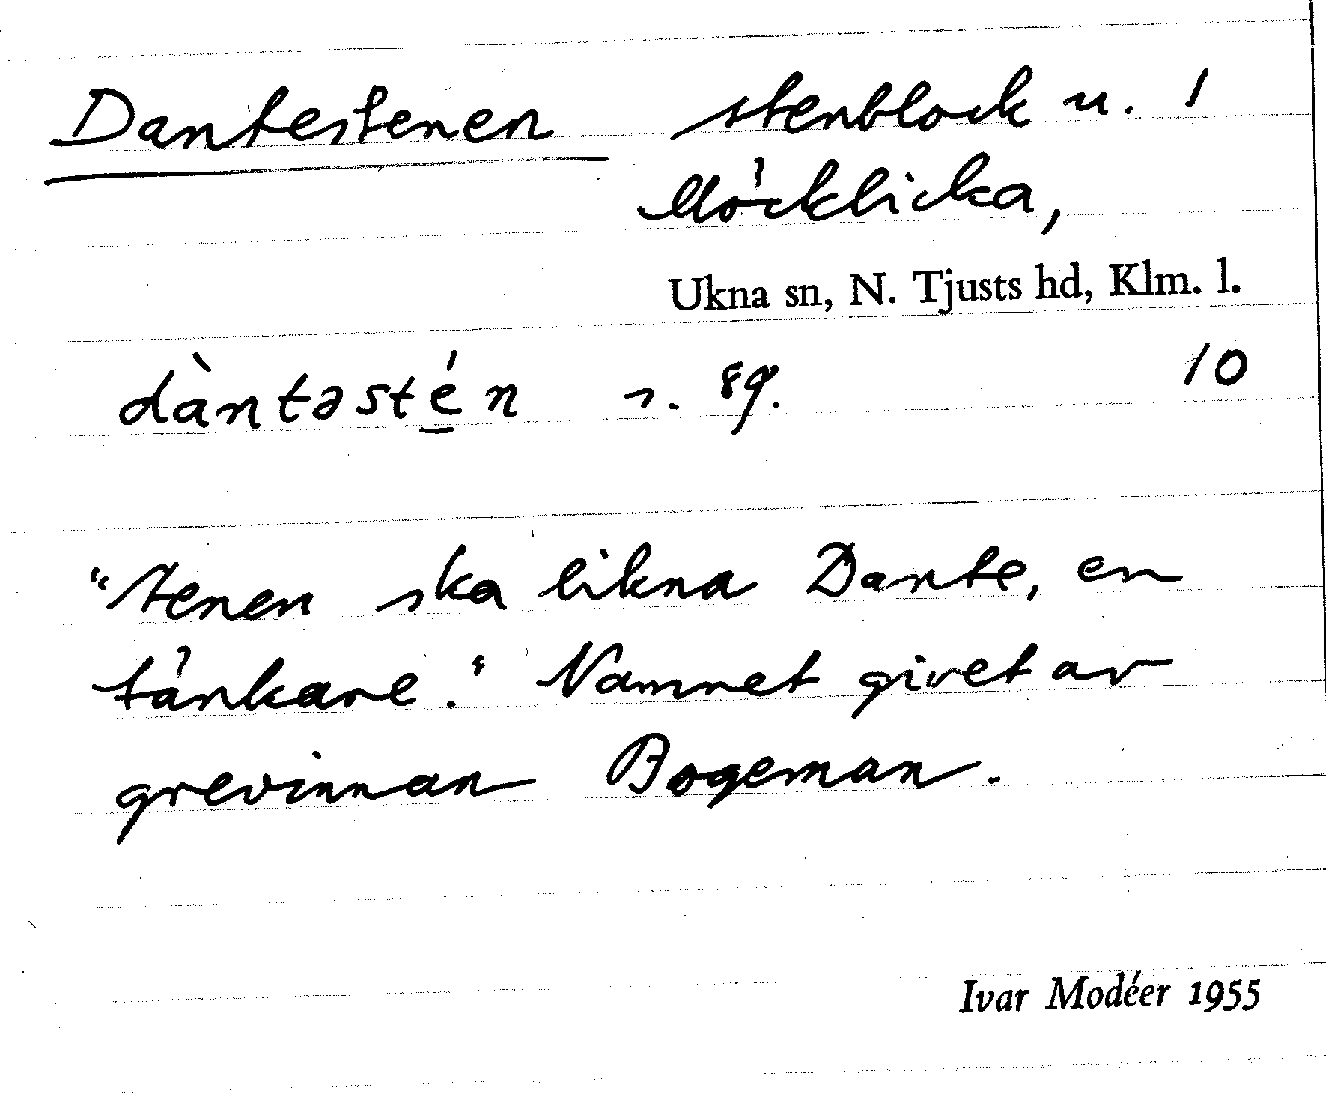 Dantestenen stenblock u. 1
Möcklicka,
Ukna sn, N. Tjusts hd, Klm. l.
dàntəsté̱n s. 89. 10
"Stenen ska likna Dante, en
tänkare." Namnet givet av
grevinnan Bogeman.
Ivar Modéer 1955